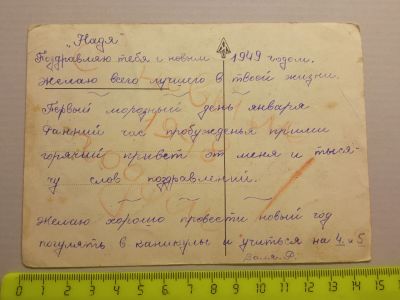 "Надя"
Поздравляю тебя с новым 1949 годом.
Желаю всего лучшего в твоей жизни.
Первый морозный день января
Данний час пробужденья прими
горячий привет от меня и тыся-
чу слов поздравлений.
Желаю хорошо провести новый год
погулять в каникулы и учиться на 4 и 5
Валя Р.
0 1 2 3 4 5 6 7 8 9 10 11 12 13 14 15